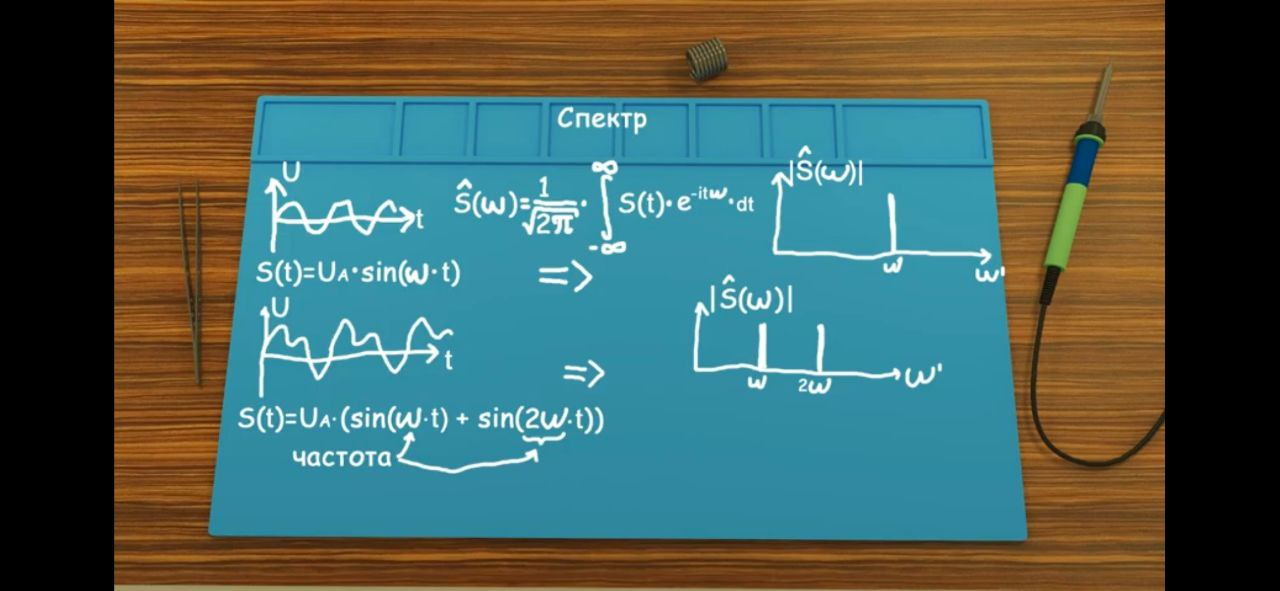 Спектр
U
t
Ŝ(ω)=1/√2π · ∫ ∞ -∞ S(t)·e^-itω·dt
|Ŝ(ω)|
ω
ω'
S(t)=UA·sin(ω·t)
=>
U
t
=>
|Ŝ(ω)|
ω
2ω
ω'
S(t)=UA·(sin(ω·t) + sin(2ω·t))
частота